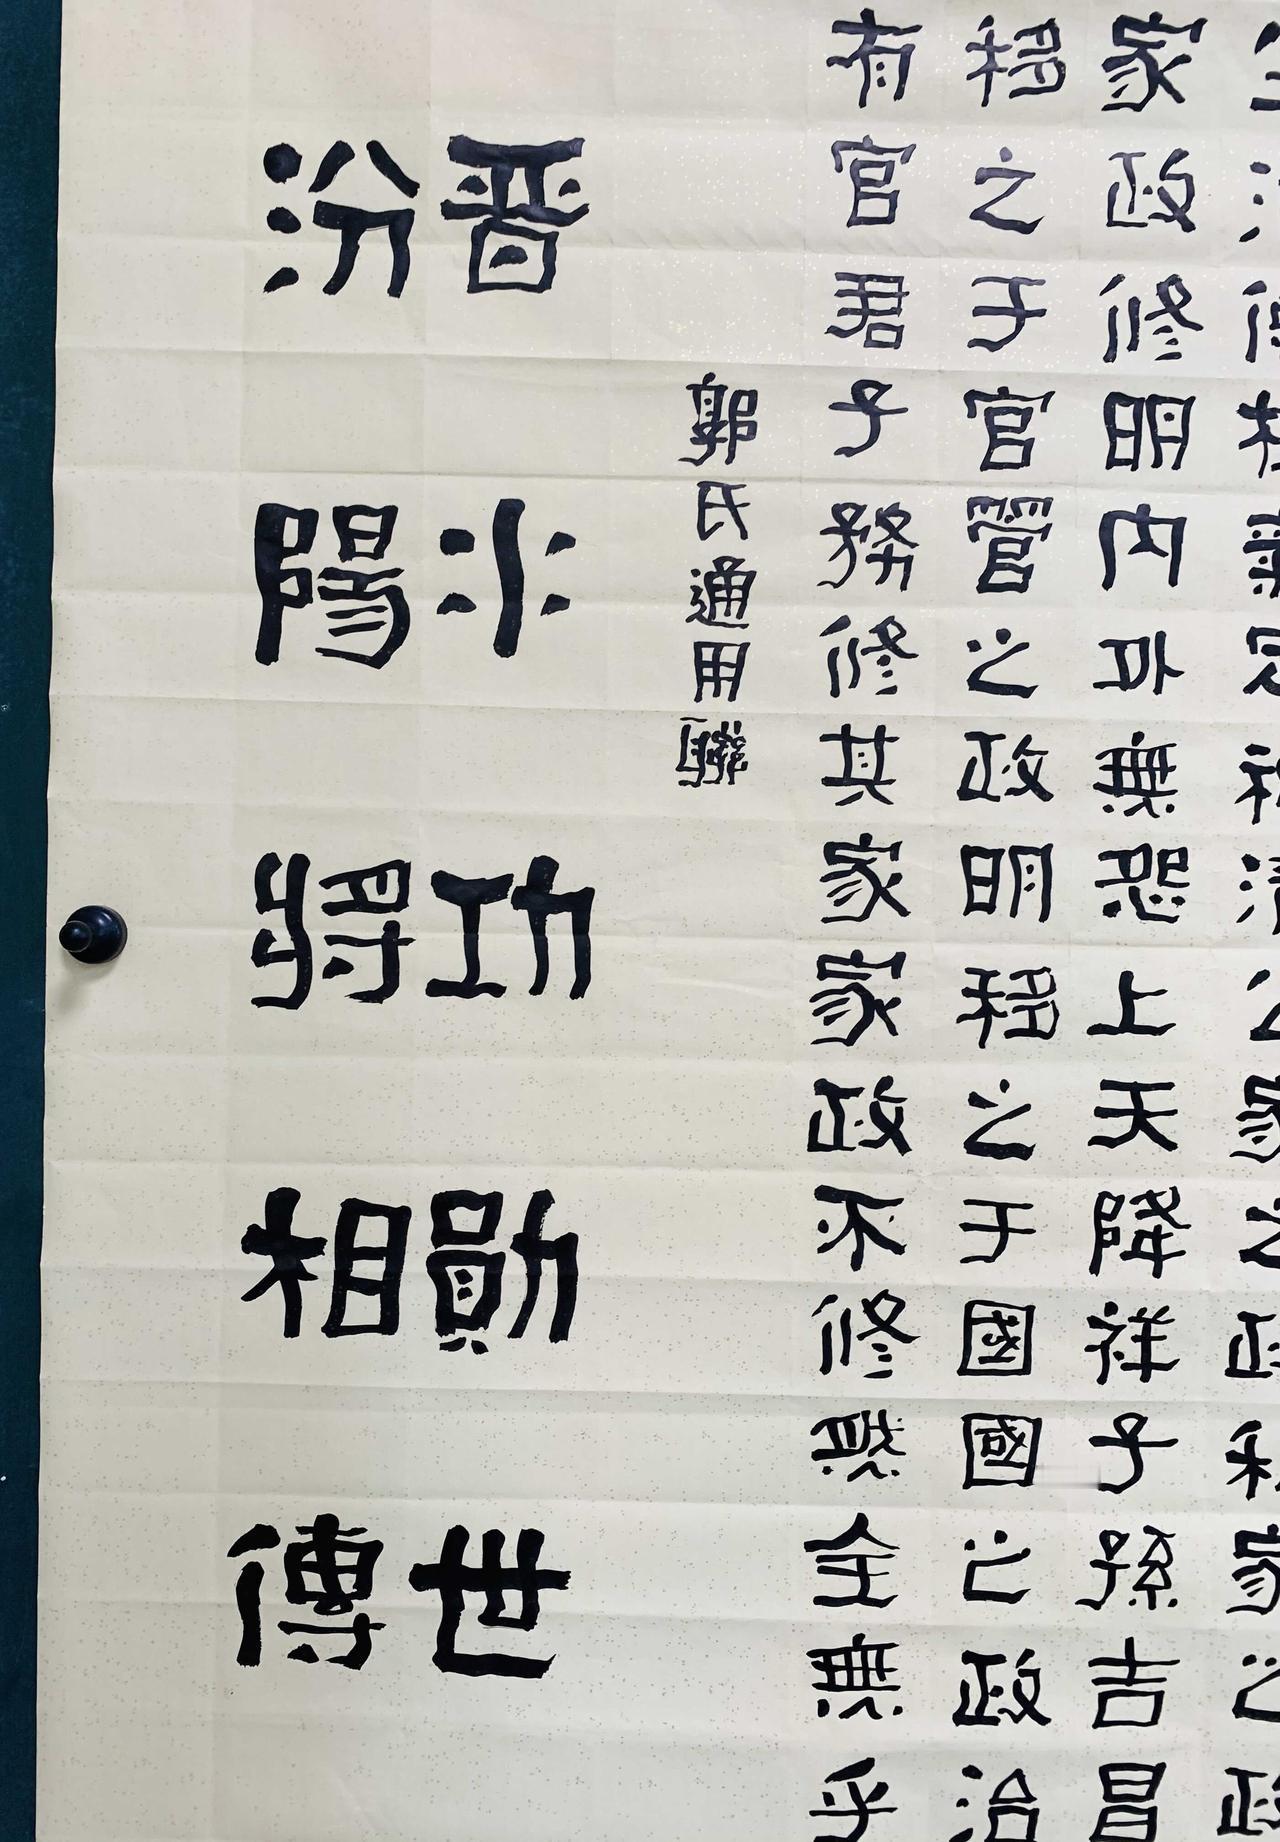 家政修明内外無怨上天降祥子孫吉昌
移之于官管之政明移之于國國之政治
有官君子務修其家家政不修全無乎
郭氏通用聯
晋水功勛世
汾陽將相傳